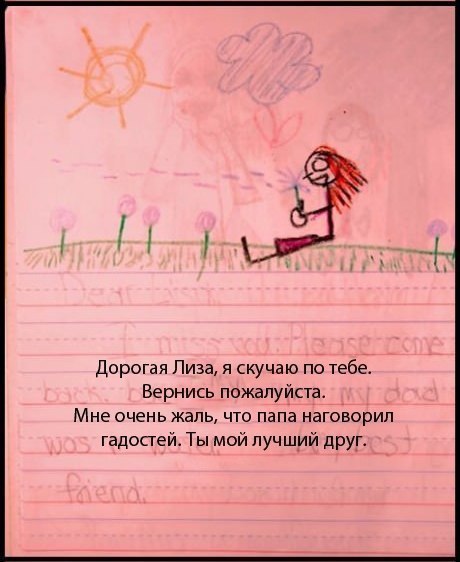 Dear Lisa,
I miss you. Please come
back. my dad
was best
friend.
Дорогая Лиза, я скучаю по тебе.
Вернись пожалуйста.
Мне очень жаль, что папа наговорил
гадостей. Ты мой лучший друг.